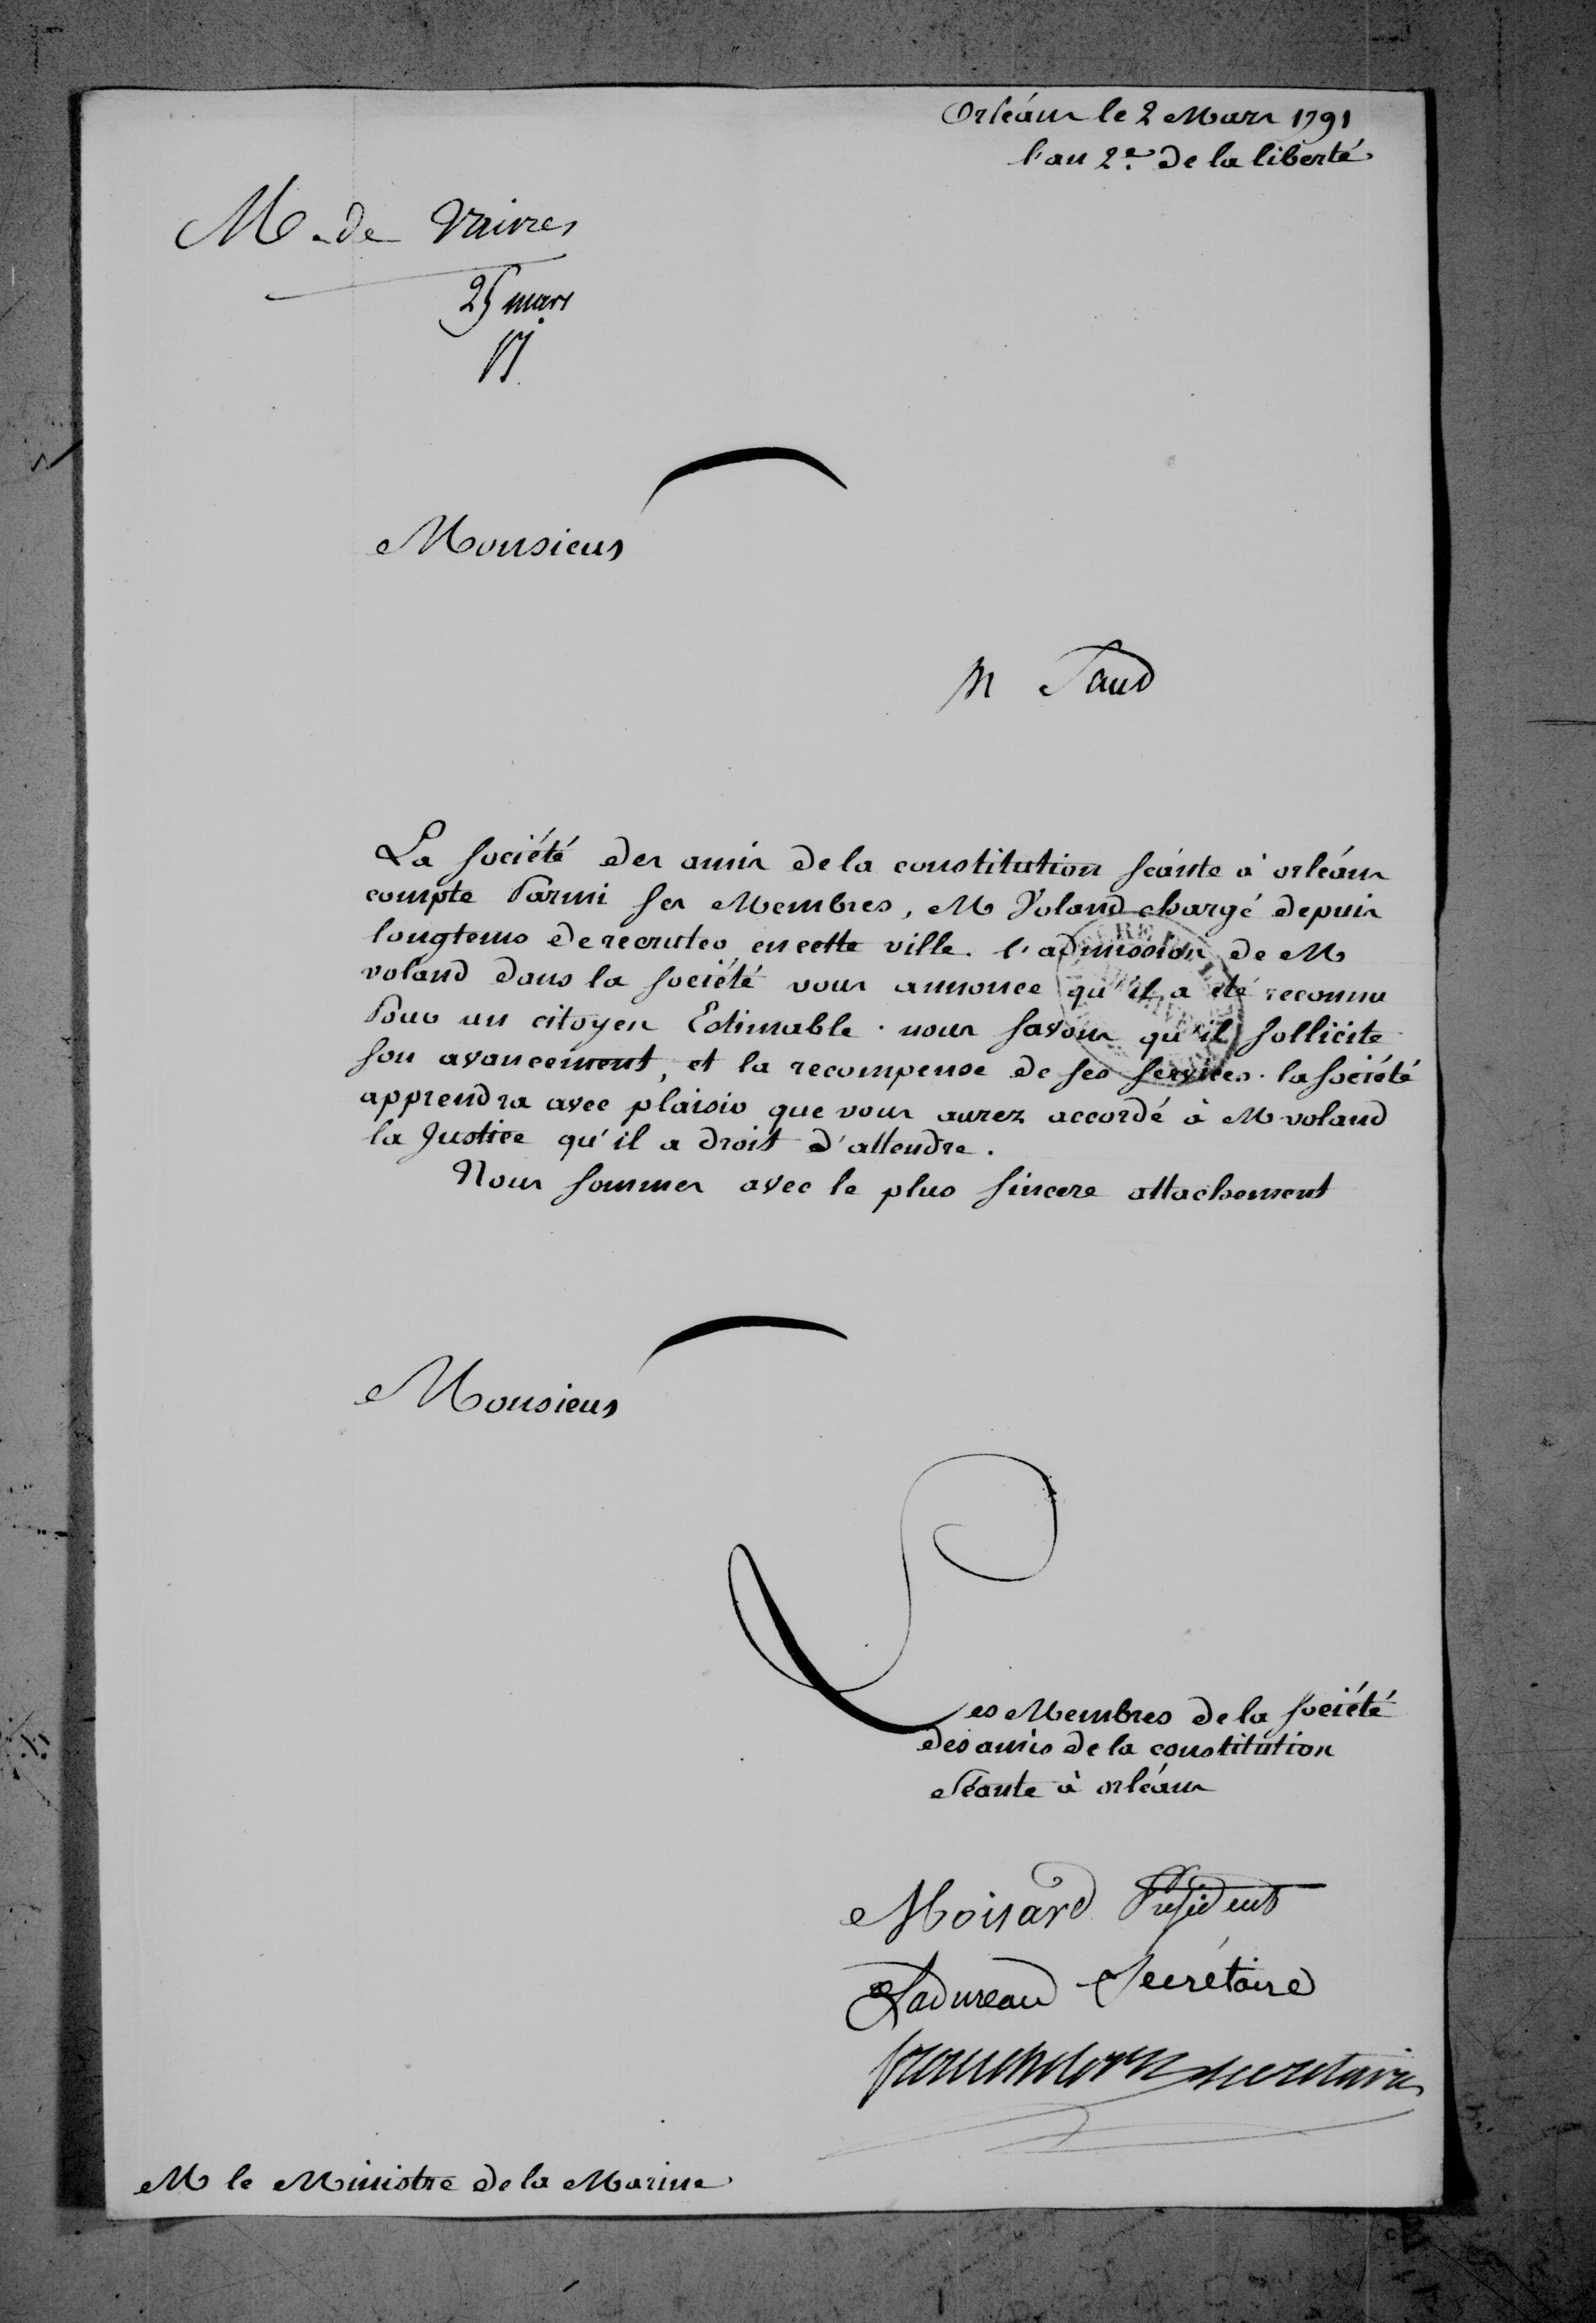 Orléans le 2 Mars 1791
l'an 2e. de la liberté
M. de Vaivres
25 mars
Monsieur
M
La société des amis de la constitution séante à orléans
compte Parmi ses Membres, M Voland chargé depuis
longtems de recruter en cette ville. l'admission de M
voland dans la société vous annonce qu'il a été reconnu
Pour un citoyen Estimable. nous savons qu'il sollicite
son avancement, et la recompense de ses services. la société
apprendra avec plaisir que vous aurez accordé à M voland
la Justice qu'il a droit d'attendre.
Nous sommes avec le plus sincere attachement
Monsieur
Les Membres de la société
des amis de la constitution
Séante à orléans
Moisard Président
Ladureau Secrétaire
secretaire
M le Ministre de la Marine